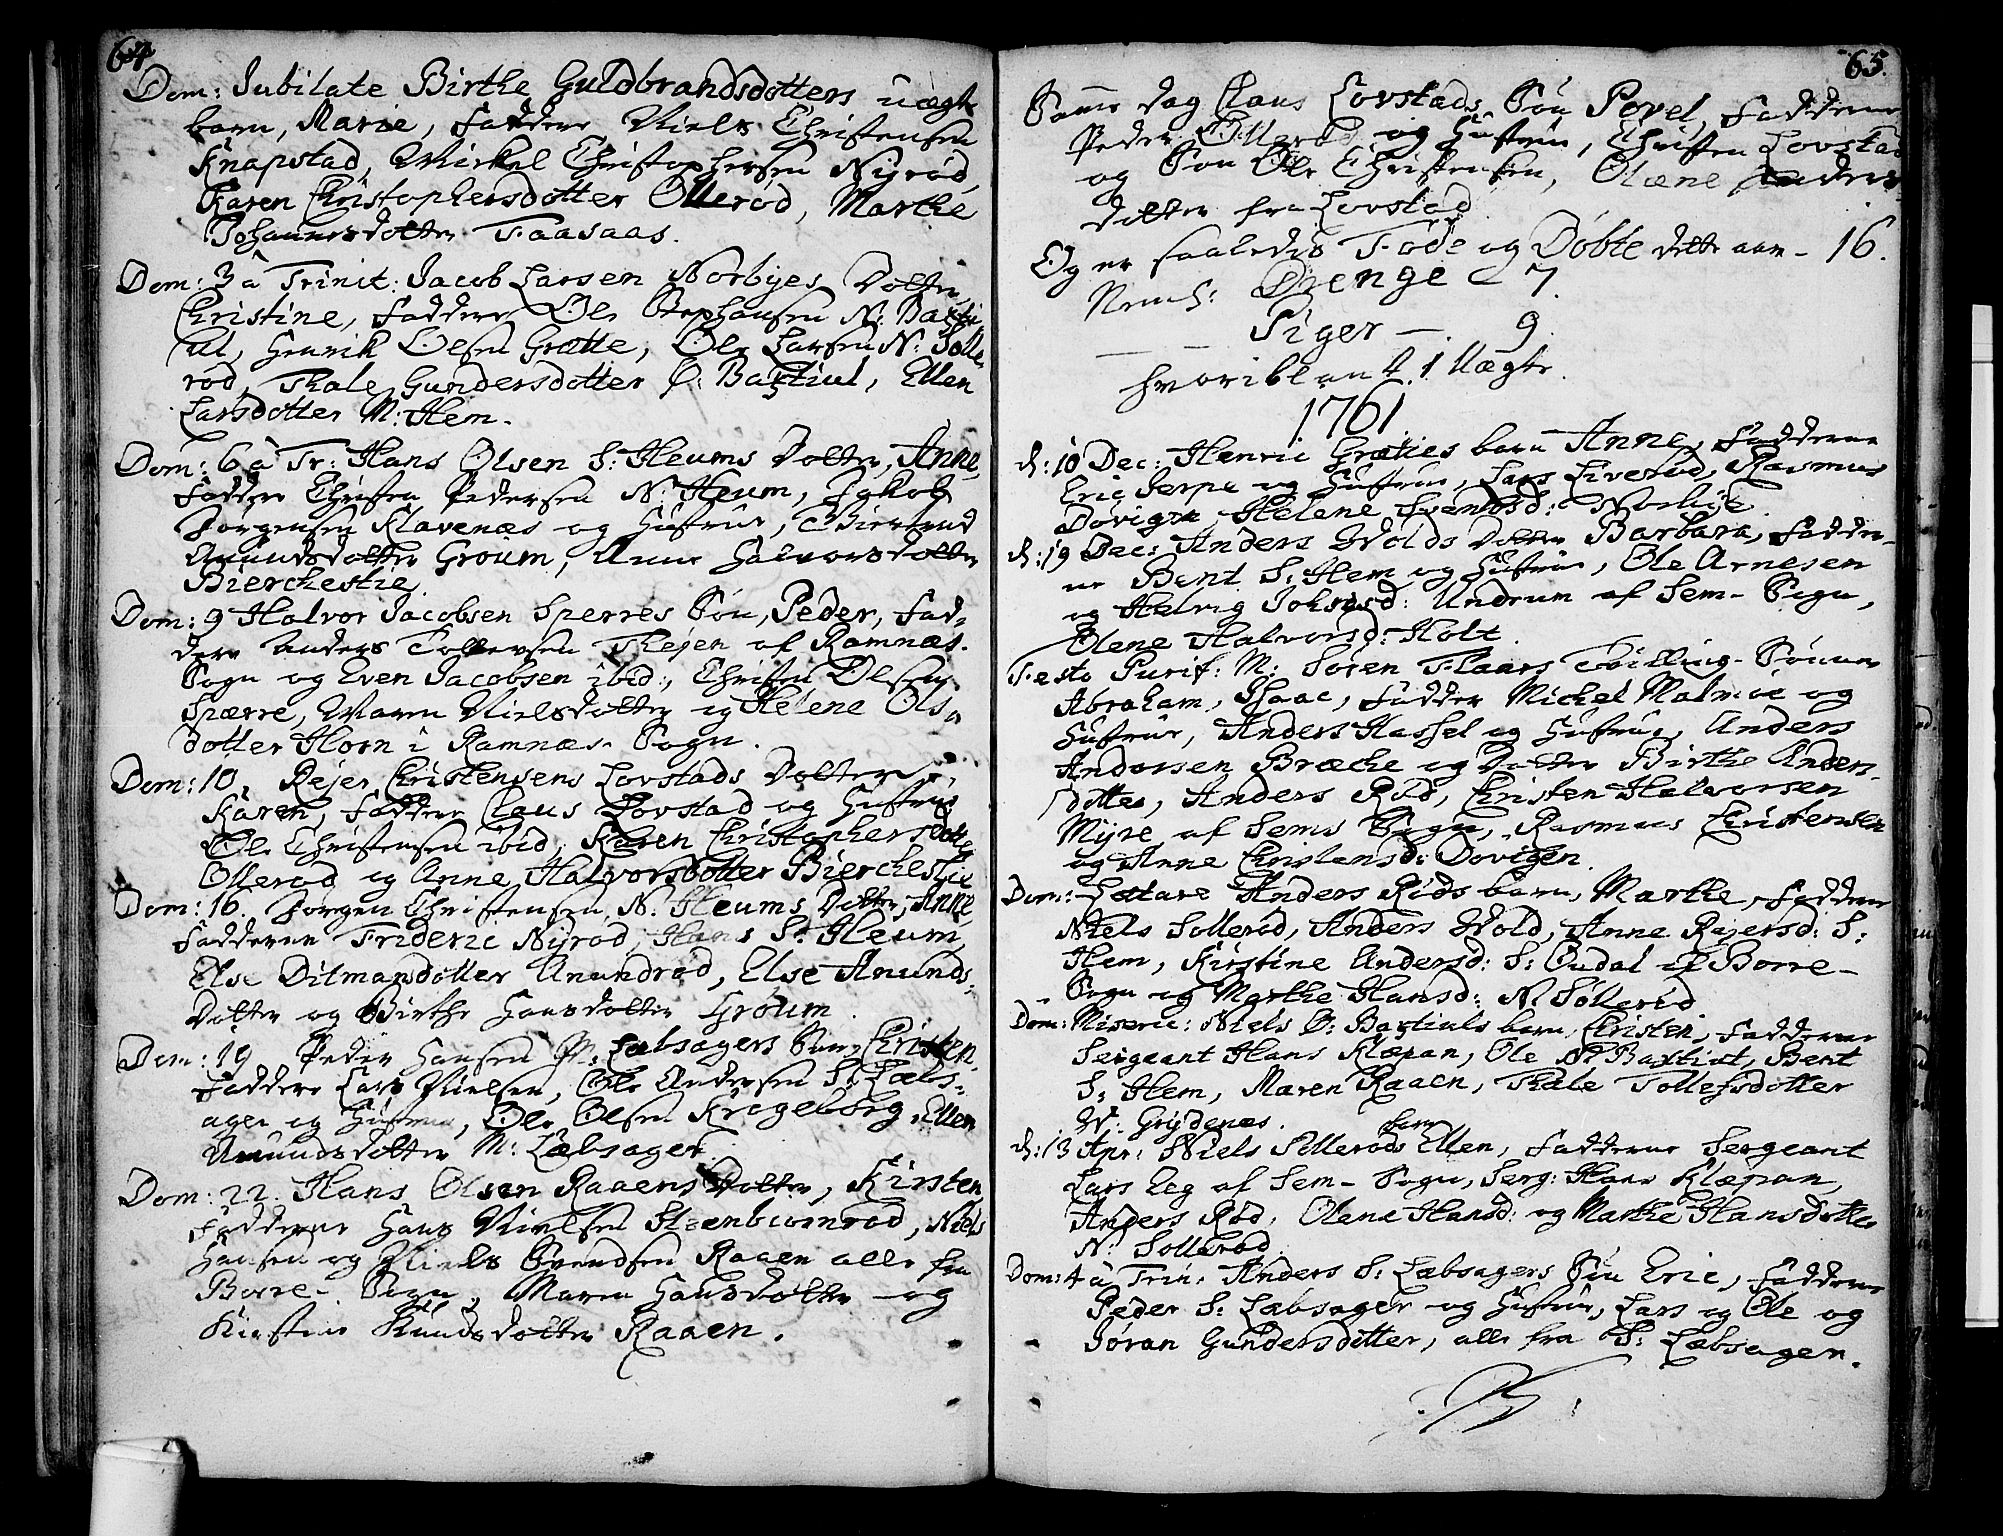 64.
Dom: Jubilate Birthe Guldbrandsdotters uægte
barn, Marie, Faddere Niels Christensen
Knapstad, Mickel Christophersen Nyrød
Karen Christophersdotter Ollerød, Marthe
Johannesdotter Faasaas.
Dom: 3 à Trinit: Jacob Larsen Norbyes Dotter
Christine, Faddere Ole Stephansen N: Basti
ul, Henrik Olsen Grette, Ole Larsen N: Solle
rød, Thale Gundersdotter Ø: Bastiul, Ellen
Larsdotter M: Hem.
Dom: 6 à Tr: Hans Olsen S: Heums Dotter, Anne,
Faddere Christen Pedersen N: Heum, Jakob
Jørgensen Klavenæs og Hustrue, Giertrud
Amundsdotter Groum, Anne Halvorsdotter
Bierchestie.
Dom: 9 Halvor Jacobsen Sperres Søn, Peder, Fad=
dere Anders Tollevsen Thejen af Ramnæs-
Sogn og Even Jacobsen ibid:, Christen Olsen
Spærre, Maren Nielsdotter og Helene Ols=
dotter Horn i Ramnæs- Sogn.
Dom: 10, Rejer Christensens Lovstads Dotter
Karen, Faddere Claus Lovstad og Hustrue
Ole Christensen ibid, Karen Christophersdotter
Ollerød og Anne Halvorsdotter Bierchestie
Dom: 16. Jørgen Christensen N: Heums Dotter, Anne
Fadderne Frideric Nyrød, Hans S: Heum
Else Ditmansdotter Anundrød, Else Anunds=
Dotter og Birthe Hansdotter Groum.
Dom: 19 Peder Hansen M: Læbsagers Søn Christen,
Faddere Lars Nielsen, Ole Andersen S: Læbs=
ager og Hustrue, Ole Olsen Krogeborg, Ellen
Amundsdotter M: Læbsager.
Dom: 22. Hans Olsen Raaens Dotter, Kirsten
Fadderne Hans Nielsen Steenbiørnrød, Niels
Hansen og Niels Svendsen Raaen alle fra
Borre- Sogn, Maren Hansdotter og
Kirstine Knudsdotter Raaen.
65.
Samme dag Claus Lovstads Søn Povel, Fadderne
Peder Ollerød og Hustrue, Christen Lovstad
og Søn Ole Christensen, Olæne Anders
dotter fra Lovstad
Og er saaledes Føde og Døbte dette aar - 16.
Neml: Drenge 7.
— — Piger — 9.
hvoriblant 1 Uægte.
1761
d: 10 Dec: Henric Græties barn Anne, Fadderne
Eric Jerpe og Hustrue, Lars Livestad, Rasmus
Døvigen, Helene Svendsd: Norbye.
d: 19 Dec: Anders Wolds Dotter Barbara, Fadder-
ne Bent S: Hem og Hustrue, Ole Arnesen
og Helvig Johansd: Undrum af Sem- Sogn,
Olene Halvorsd: Holt.
Festo Purif: M: Søren Flaars Tvilling- Sønner
Abraham, Isaac, Fadder Michel Malmøe og
Hustrue, Anders Hassel og Hustrue, Anders
Andersen Bræche og Dotter Birthe Anders-
dotter, Anders Rød, Christen Halvorsen
Myre af Sems Sogn, Rasmus Christensen
og Anne Christensd: Dovigen.
Dom: Lætare Anders Røds barn, Marthe, Fadderne
Niels Sollerød, Anders Wold, Anne Rejersd: S:
Hem, Kirstine Andersd: S: Oudal af Borre-
Sogn og Marthe Hansd: N: Søllerød
Dom: Miseric: Niels Ø: Bastiuls barn Christen, Fadderne
Sergeant Hans Klæpan, Ole N: Bastiul, Bent
S: Hem, Maren Raaen, Thale Tollefsdotter
W: Grydenæs.
barn
d: 13 Apr: Niels Sollerøds Ellen, Fadderne Sergeant
Lars Eeg af Sem- Sogn, Serg: Hans Klæpan,
Anders Rød, Olene Hansd: og Marthe Hansdotter
N: Sollerød.
Dom: 4 à Trin: Anders S: Læbsagers Søn Eric, Fadderne
Peder S: Læbsager og Hustrue, Lars og Ole og
Joran Gundersdotter, alle fra S: Læbsager.